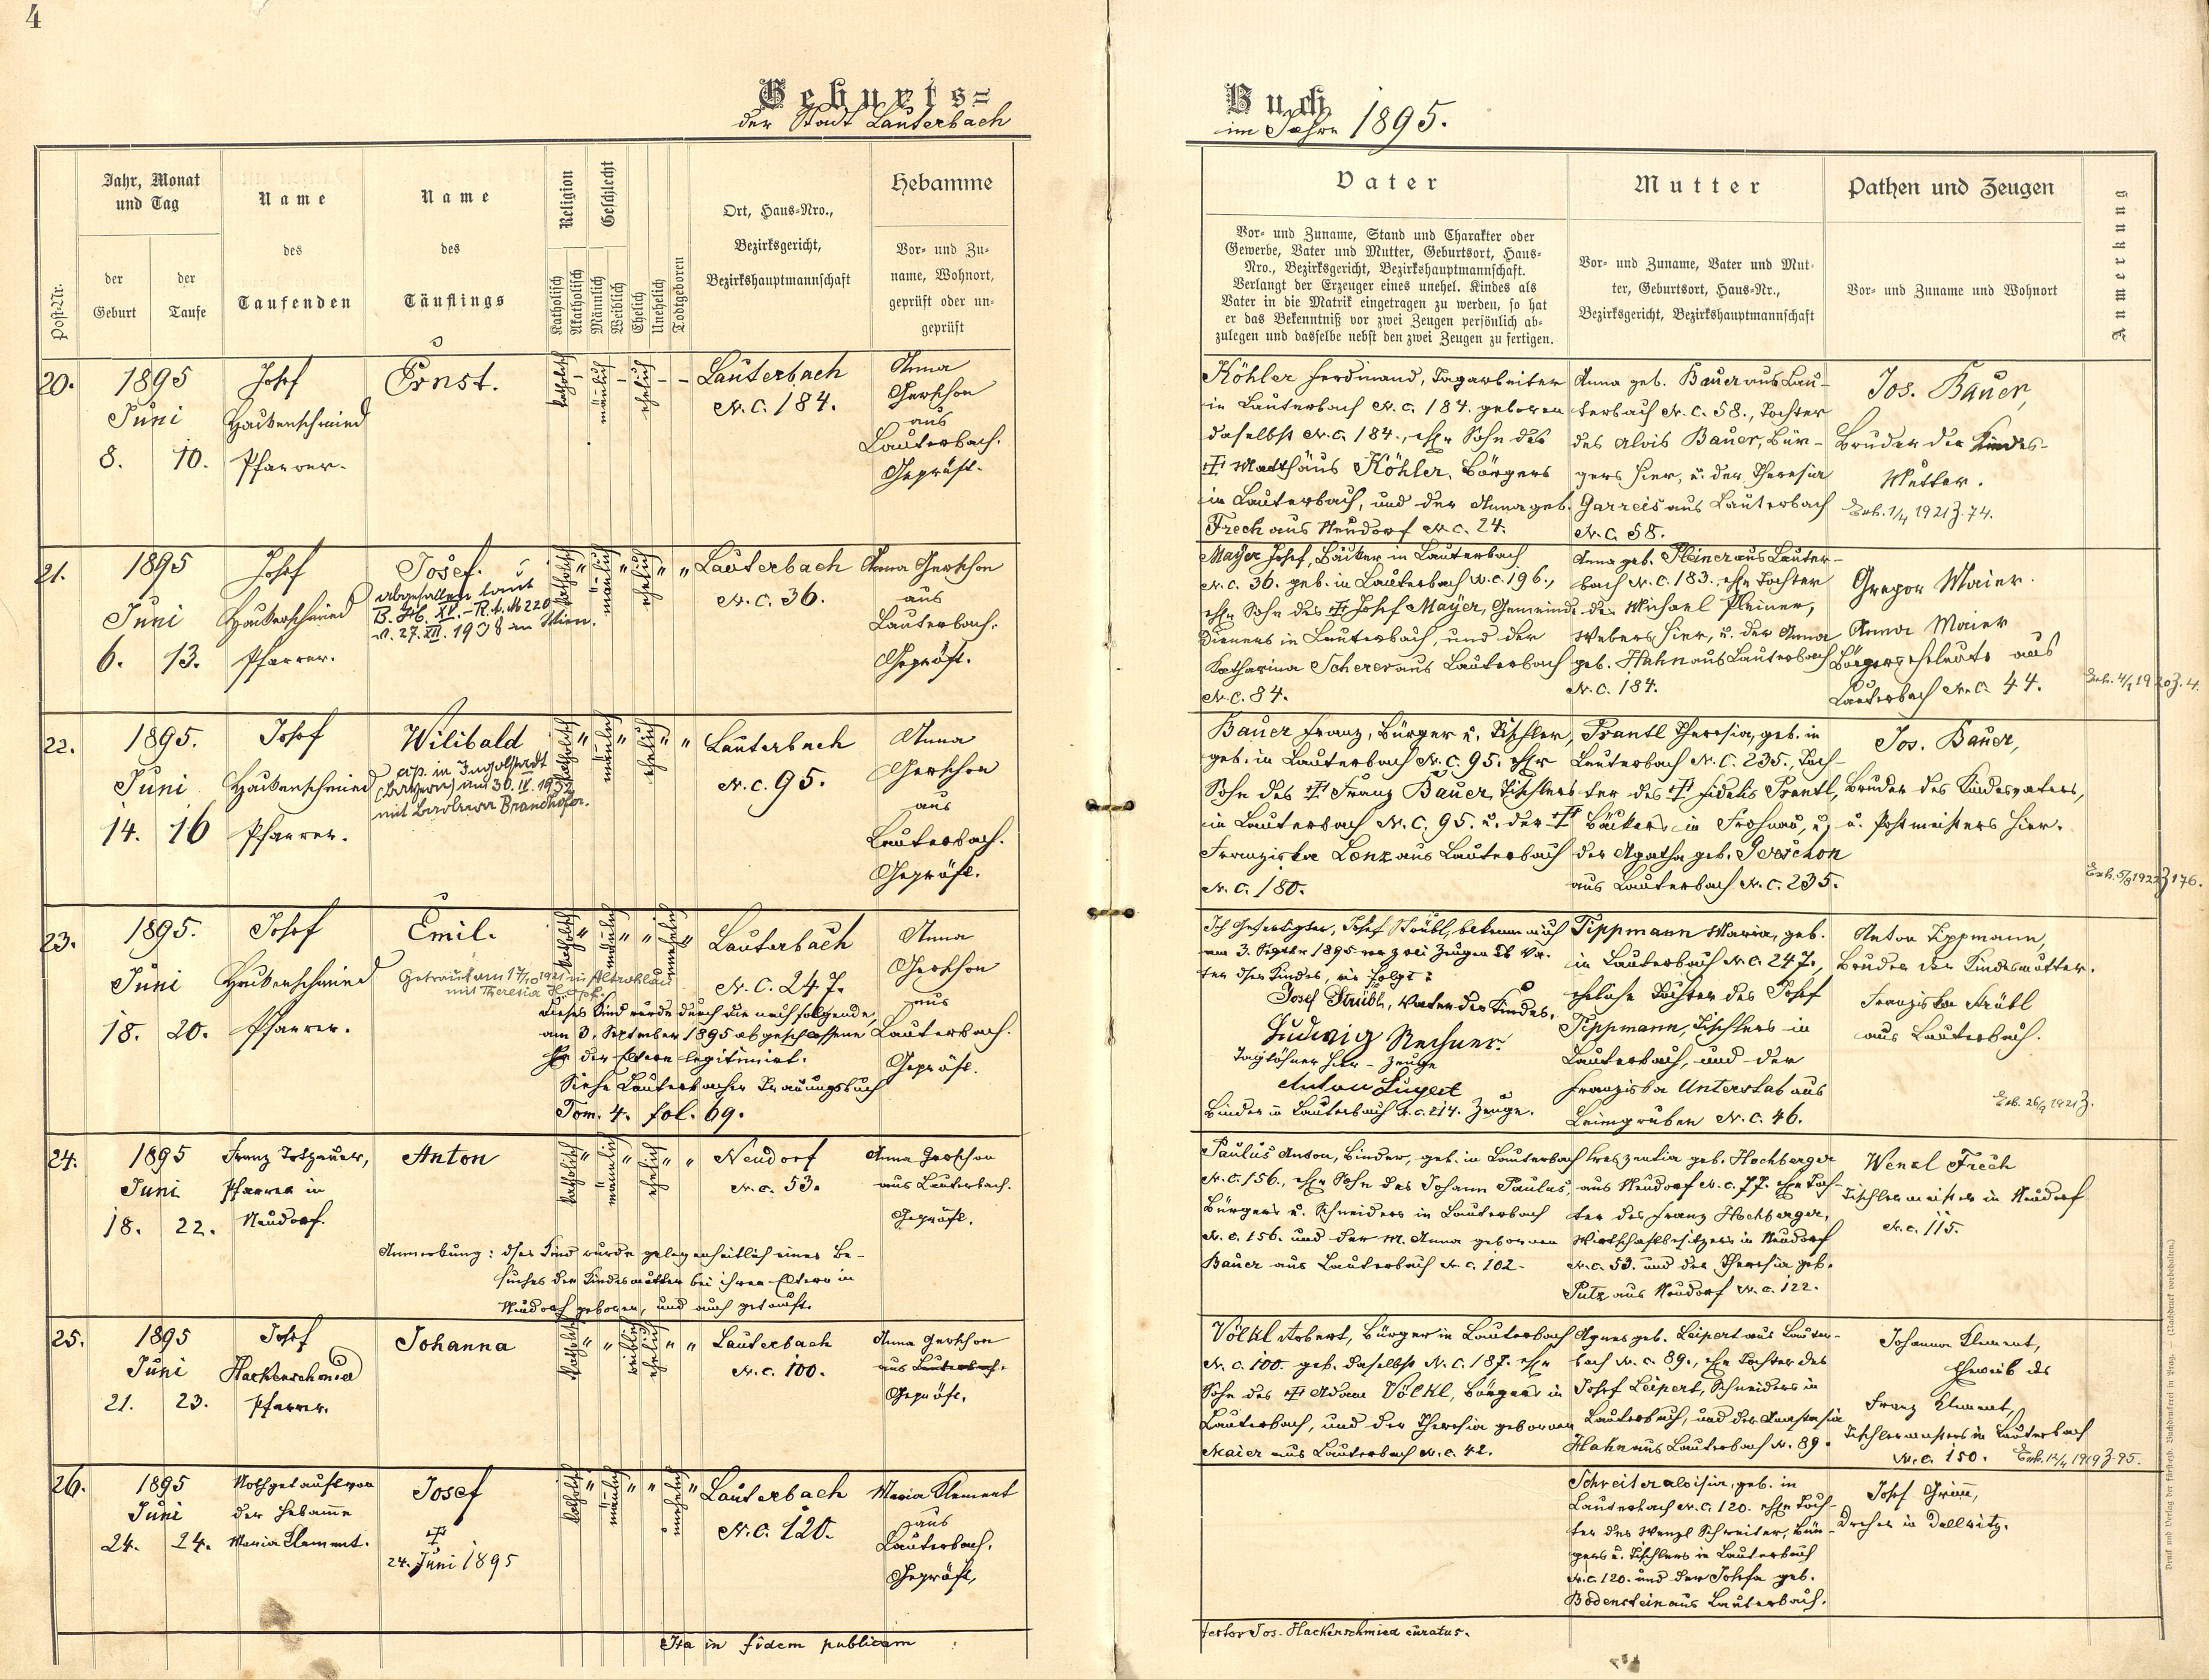 4
Geburts=
der Stadt Lauterbach
Buch
im Jahre 1895.
Post-Nr.
Jahr, Monat
und Tag
der
Geburt
der
Taufe
Name
des
Taufenden
Name
des
Täuflings
Religion
Katholisch
Akatholisch
Geschlecht
Männlich
Weiblich
Ehelich
Unehelich
Todtgeboren
Ort, Haus=Nro.,
Bezirksgericht,
Bezirkshauptmannschaft
Hebamme
Vor= und Zu=
name, Wohnort,
geprüft oder un=
geprüft
Vater
Vor= und Zuname, Stand und Charakter oder
Gewerbe, Vater und Mutter, Geburtsort, Haus=
Nro., Bezirksgericht, Bezirkshauptmannschaft.
Verlangt der Erzeuger eines unehel. Kindes als
Vater in die Matrik eingetragen zu werden, so hat
er das Bekenntniß vor zwei Zeugen persönlich ab=
zulegen und dasselbe nebst den zwei Zeugen zu fertigen.
Mutter
Vor= und Zuname, Vater und Mut=
ter, Geburtsort, Haus=Nr.,
Bezirksgericht, Bezirkshauptmannschaft
Pathen und Zeugen
Vor= und Zuname und Wohnort
Anmerkung
20.
1895
Juni
8. 10.
Josef
Hackenschmied
Pfarrer.
Ernst.
katholisch
-
männlich
-
ehelich
- -
Lauterbach
N.C. 184.
Anna
Gerschon
aus
Lauterbach.
Geprüft.
Köhler Ferdinand, Tagarbeiter
in Lauterbach N.C. 184. geboren
daselbst N.C. 184., ehl. Sohn des
☩ Matthäus Köhler, Bürgers
in Lauterbach, und der Anna geb.
Frech aus Neudorf N.C. 24.
Anna geb. Bauer aus Lau-
terbach N.C. 58., Tochter
des Alois Bauer, Bür-
gers hier, u. der Theresia
Garreis aus Lauterbach
N.C. 58.
Jos. Bauer,
Bruder der Kindes-
Mutter.
1/4 1921 Z. 74.
21.
1895
Juni
6. 13.
Josef
Hackenschmied
Pfarrer.
Josef.
abgefallen laut
B. Hb. XV. - R.t. N 220
v. 27. XII. 1938 in Wien.
katholisch
"
männlich
"
ehelich
" "
Lauterbach
N.C. 36.
Anna Gerschon
aus
Lauterbach.
Geprüft.
Mayer Josef, Bäcker in Lauterbach
N.C. 36. geb. in Lauterbach N.C. 196.,
ehl. Sohn des ☩ Josef Mayer, Gemeinde
Dieners in Lauterbach, und der
Katharina Scherer aus Lauterbach
N.C. 84.
Anna geb. Pleiner aus Lauter-
bach N.C. 183., ehl. Tochter
des Michael Pleiner,
Webers hier, u. der Anna
geb. Hahn aus Lauterbach
N.C. 184.
Gregor Maier.
Anna Maier
Bürgerseheleute aus
Lauterbach N.C. 44.
22.
1895.
Juni
14. 16
Josef
Hackenschmied
Pfarrer.
Wilibald
in Ingolstadt
(Bayern) am 30. IV. 1952
mit Barbara Brandhofer.
katholisch
"
männlich
"
ehelich
" "
Lauterbach
N.C. 95.
Anna
Gerschon
aus
Lauterbach.
Geprüft.
Bauer Franz, Bürger u. Tischler,
geb. in Lauterbach N.C. 95. ehl.
Sohn des ☩ Franz Bauer, Tischlers
in Lauterbach N.C. 95. u. der ☩
Franziska Lenz aus Lauterbach
N.C. 180.
Prantl Theresia, geb. in
Lauterbach N.C. 235., Toch-
ter des ☩ Fidelis Prantl,
Bäckers in Frohnau, u.
der Agatha geb. Gerschon
aus Lauterbach N.C. 235.
Jos. Bauer,
Bruder des Kindesvaters,
u. Postmeisters hier.
23.
1895.
Juni
18. 20.
Josef
Hackenschmied
Pfarrer.
Emil.
Getraut am 17/10 1921 in Altrohlau
mit Theresia
katholisch
"
männlich
" "
unehelich
"
Lauterbach
N.C. 247.
Dieses Kind wurde durch die nachfolgende,
am 3. September 1895 abgeschlossene
Ehe der Eltern legitimirt.
Siehe Lauterbacher Trauungsbuch
Tom. 4. fol. 69.
Anna
Gerschon
aus
Lauterbach.
Geprüft.
Ich Gefertigter, Josef Strübl, bekenne mich
am 3. Septbr 1895 vor zwei Zeugen als Va-
ter dses Kindes, wie folgt:
Josef Strübl, Vater des Kindes.
Ludwig Rechner.
Taglöhner hier - Zeuge
Anton Lugert
Binder in Lauterbach N.C. 214. Zeuge.
Tippmann Maria, geb.
in Lauterbach N.C. 247.,
eheliche Tochter des Josef
Tippmann, Tischlers in
Lauterbach, und der
Franziska Unterstab aus
Leimgruben N.C. 46.
Anton Tippmann,
Bruder der Kindesmutter.
Franziska Strübl
aus Lauterbach.
24.
1895
Juni
18. 22.
Franz Totzauer,
Pfarrer in
Neudorf.
Anton
katholisch
"
männlich
"
ehelich
" "
Neudorf
N.C. 53.
Anna Gerschon
aus Lauterbach.
Geprüft.
Anmerkung: dses Kind wurde gelegenheitlich eines Be-
suches der Kindesmutter bei ihren Eltern in
Neudorf geboren, und auch getauft.
Paulus Anton, Binder, geb. in Lauterbach
N.C. 156., ehl. Sohn des Johann Paulus,
Bürgers u. Schneiders in Lauterbach
N.C. 156. und der M. Anna geborenen
Bauer aus Lauterbach N.C. 102.
Kreszentia geb. Hochberger
aus Neudorf N.C. 77. ehl. Toch-
ter des Franz Hochberger,
Wirtschaftbesitzers in Neudorf
N.C. 53. und der Theresia geb.
Putz aus Neudorf N.C. 122.
Wenzl Frech
Tischlermeister in Neudorf
N.C. 115.
25.
1895
Juni
21. 23.
Josef
Hackenschmied
Pfarrer.
Johanna
katholisch
" "
weiblich
ehelich
" "
Lauterbach
N.C. 100.
Anna Gerschon
aus Lauterbach.
Geprüft.
Völkl Robert, Bürger in Lauterbach
N.C. 100. geb. daselbst N.C. 187. ehl.
Sohn des ☩ Adam Völkl, Bürgers in
Lauterbach, und der Theresia geborenen
Maier aus Lauterbach N.C. 42.
Agnes geb. Leipert aus Lauter-
bach N.C. 89., ehl. Tochter des
Josef Leipert, Schneiders in
Lauterbach, und der Anastasia
Hahn aus Lauterbach N. 89.
Johanna Klement,
Eheweib des
Franz Klement,
Tischlermeisters in Lauterbach
N.C. 150.
26.
1895
Juni
24. 24.
Nothgetauft von
der Hebamme
Maria Klement.
Josef
☩
24. Juni 1895
katholisch
"
männlich
" "
unehelich
Lauterbach
N.C. 120.
Maria Klement
aus
Lauterbach.
Geprüft,
Schreiter Aloisia, geb. in
Lauterbach N.C. 120. ehl. Toch-
ter des Wenzl Schreiter, Bür-
gers u. Tischlers in Lauterbach
N.C. 120. und der Josefa geb.
Bodenstein aus Lauterbach.
Josef Grimm,
Dreher in Dallwitz.
Ita in fidem publicam
testor Jos. Hackenschmied curatus.
Druck und Verlag der fürsterzb. Buchdruckerei in Prag. — (Nachdruck vorbehalten.)